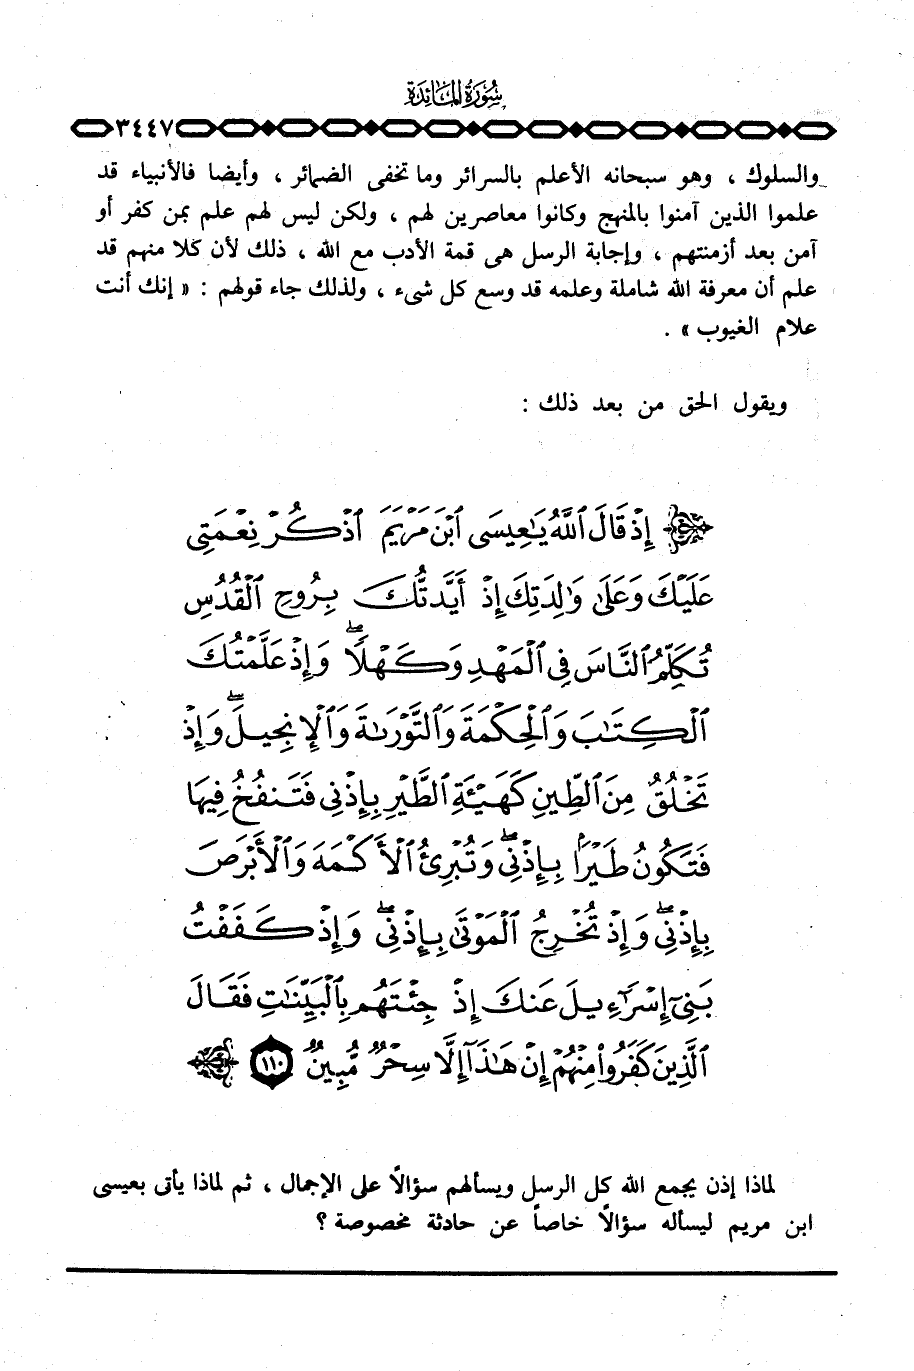 سُورَةُ المَائِدَة
٣٤٤٧
والسلوك ، وهو سبحانه الأعلم بالسرائر وما تخفى الضمائر ، وأيضا فالأنبياء قد
علموا الذين آمنوا بالمنهج وكانوا معاصرين لهم ، ولكن ليس لهم علم بمن كفر أو
آمن بعد أزمنتهم ، وإجابة الرسل هى قمة الأدب مع الله ، ذلك لأن كلا منهم قد
علم أن معرفة الله شاملة وعلمه قد وسع كل شىء ، ولذلك جاء قولهم : « إنك أنت
علام الغيوب » .
ويقول الحق من بعد ذلك :
إِذْ قَالَ ٱللَّهُ يَٰعِيسَى ٱبْنَ مَرْيَمَ ٱذْكُرْ نِعْمَتِى
عَلَيْكَ وَعَلَىٰ وَٰلِدَتِكَ إِذْ أَيَّدتُّكَ بِرُوحِ ٱلْقُدُسِ
تُكَلِّمُ ٱلنَّاسَ فِى ٱلْمَهْدِ وَكَهْلًا ۖ وَإِذْ عَلَّمْتُكَ
ٱلْكِتَٰبَ وَٱلْحِكْمَةَ وَٱلتَّوْرَىٰةَ وَٱلْإِنجِيلَ ۖ وَإِذْ
تَخْلُقُ مِنَ ٱلطِّينِ كَهَيْـَٔةِ ٱلطَّيْرِ بِإِذْنِى فَتَنفُخُ فِيهَا
فَتَكُونُ طَيْرًۢا بِإِذْنِى ۖ وَتُبْرِئُ ٱلْأَكْمَهَ وَٱلْأَبْرَصَ
بِإِذْنِى ۖ وَإِذْ تُخْرِجُ ٱلْمَوْتَىٰ بِإِذْنِى ۖ وَإِذْ كَفَفْتُ
بَنِىٓ إِسْرَٰٓءِيلَ عَنكَ إِذْ جِئْتَهُم بِٱلْبَيِّنَٰتِ فَقَالَ
ٱلَّذِينَ كَفَرُوا۟ مِنْهُمْ إِنْ هَٰذَآ إِلَّا سِحْرٌ مُّبِينٌ ١١٠
لماذا إذن يجمع الله كل الرسل ويسألهم سؤالاً على الإجمال ، ثم لماذا يأتى بعيسى
ابن مريم ليسأله سؤالاً خاصاً عن حادثة مخصوصة ؟